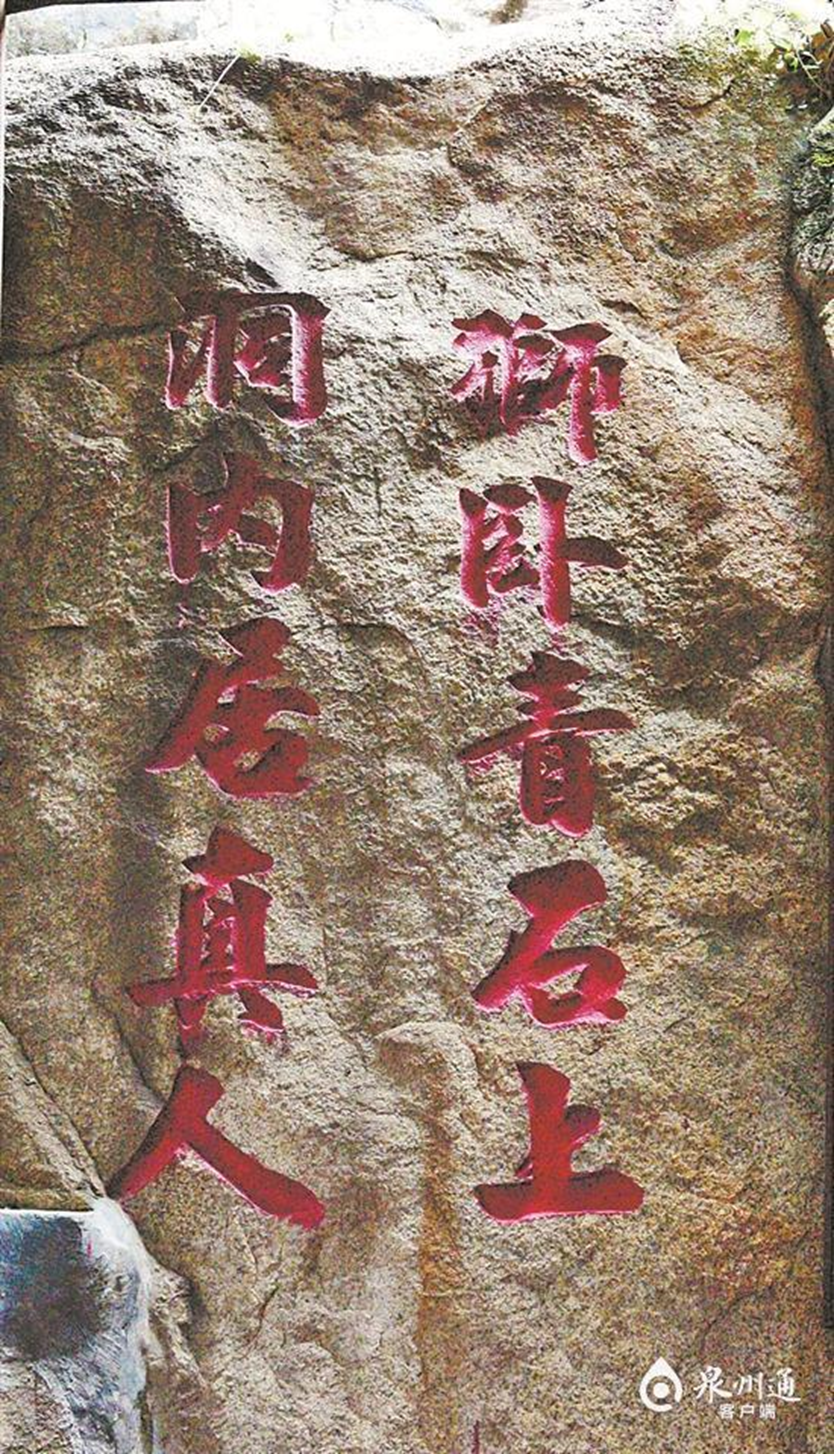 獅卧青石上
洞内居真人
泉州通
客户端